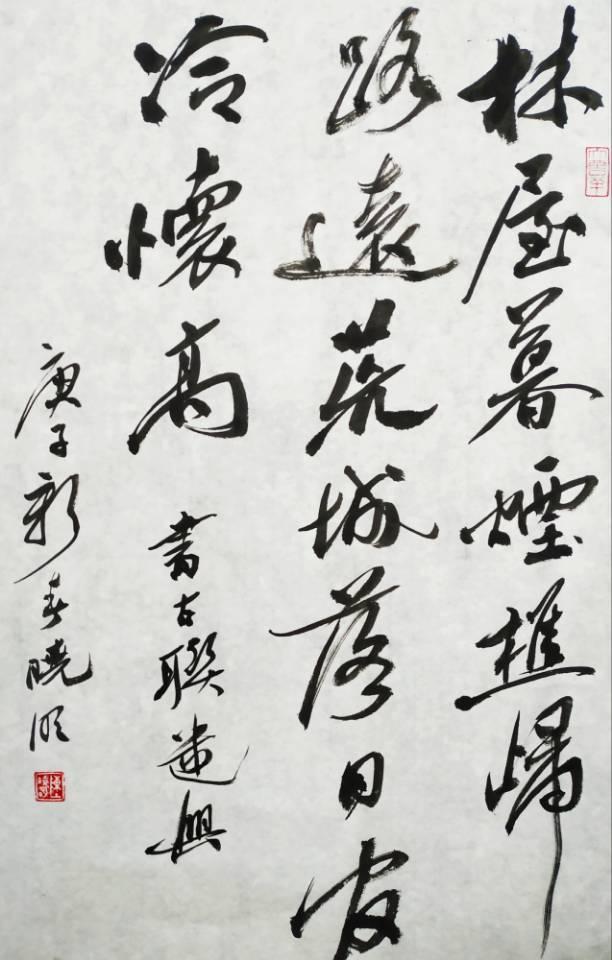 林屋暮煙樵歸
路遠荒城落日官
冷懷高
書古聯遣興
庚子新春曉